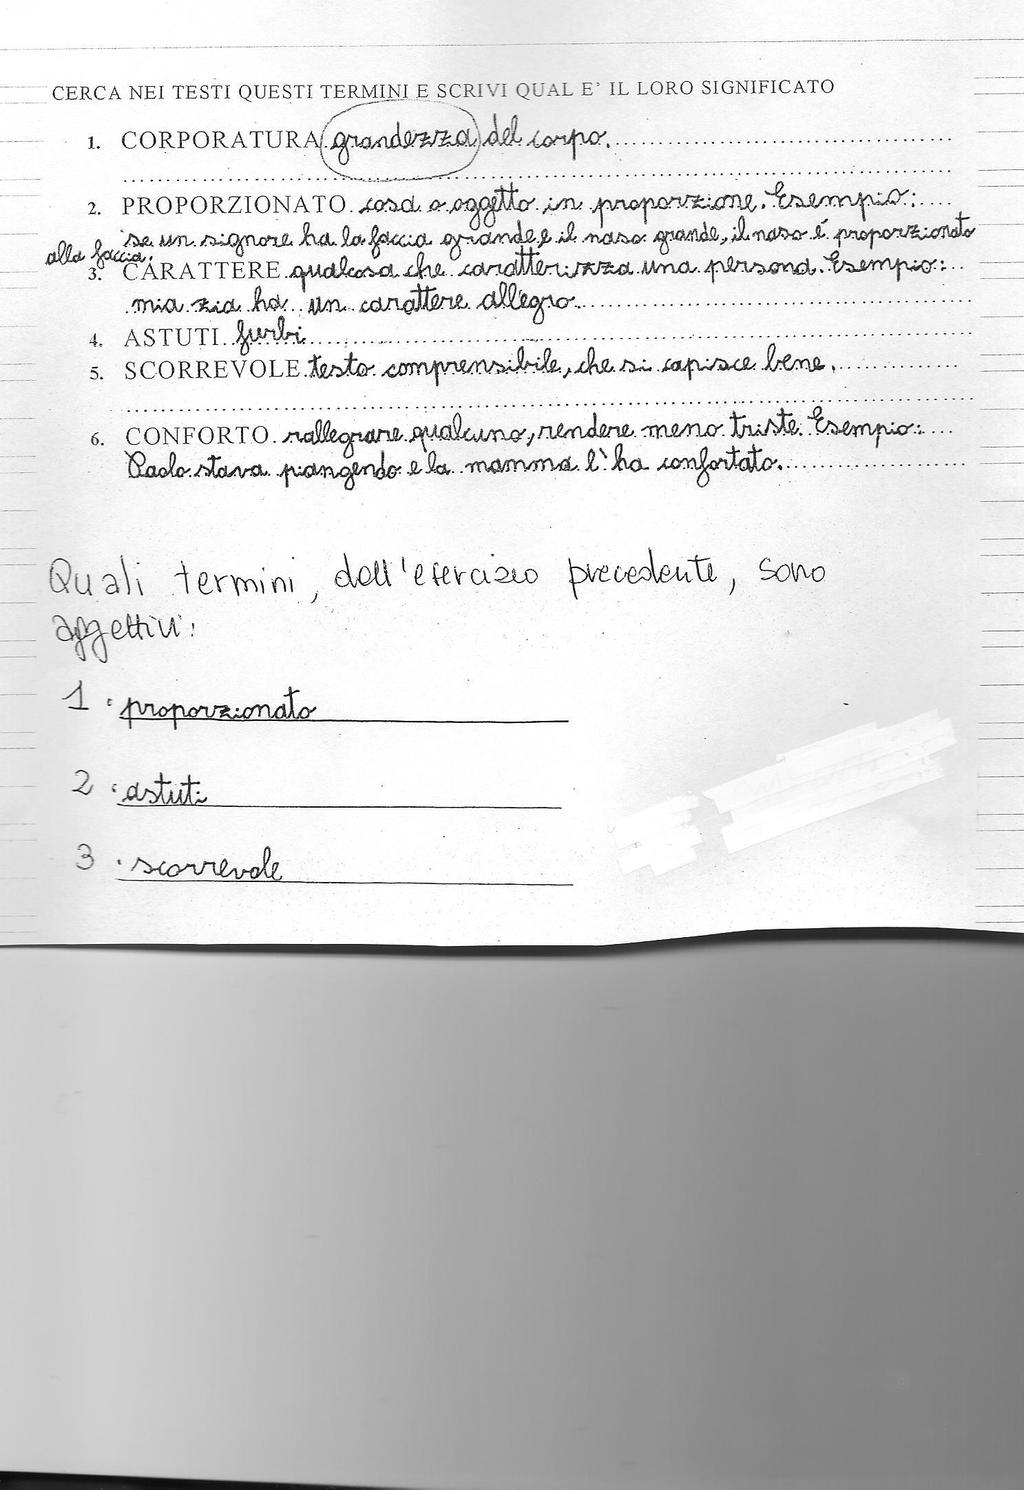 CERCA NEI TESTI QUESTI TERMINI E SCRIVI QUAL E' IL LORO SIGNIFICATO
1. CORPORATURA grandezza del corpo.
2. PROPORZIONATO cosa o oggetto in proporzione. Esempio:
se un signore ha la faccia grande e il naso grande, il naso é proporzionato
alla faccia.
3. CARATTERE qualcosa che caratterizza una persona. Esempio:
mia zia ha un carattere allegro
4. ASTUTI furbi
5. SCORREVOLE testo comprensibile, che si capisce bene.
6. CONFORTO rallegrare qualcuno, rendere meno triste. Esempio:
Paolo stava piangendo e la mamma l'ha confortato.
Quali termini, dell'esercizio precedente, sono
aggettivi:
1. proporzionato
2. astuti
3. scorrevole